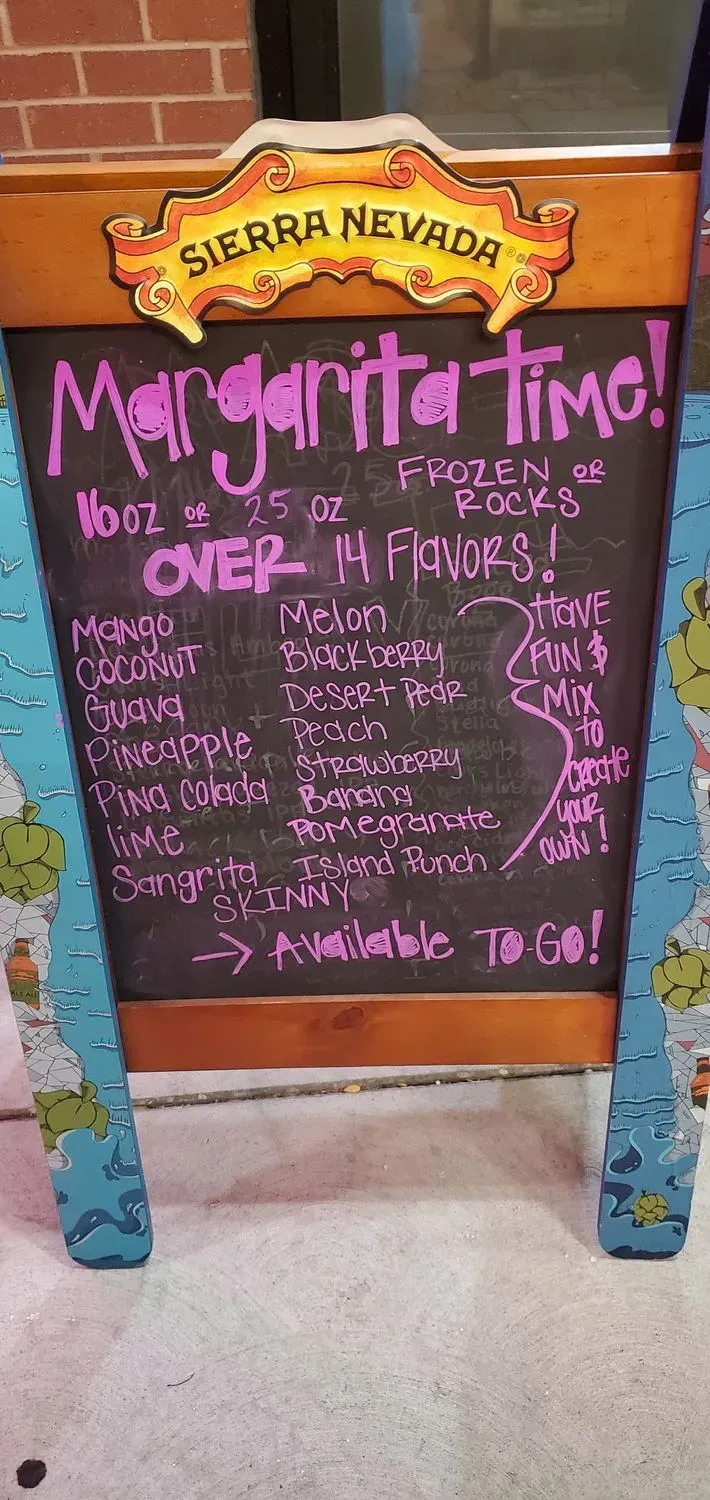 SIERRA NEVADA®
Margarita Time!
16oz or 25 oz
FROZEN or
ROCKS
OVER 14 Flavors!
Mango
COCONUT
Guava
Pineapple
Pina Colada
lime
Sangrita
SKINNY
Melon
Blackberry
Desert Pear
Peach
Strawberry
Banana
Pomegranate
Island Punch
HAVE
FUN $
Mix
to
create
your
own!
→ Available TO-GO!